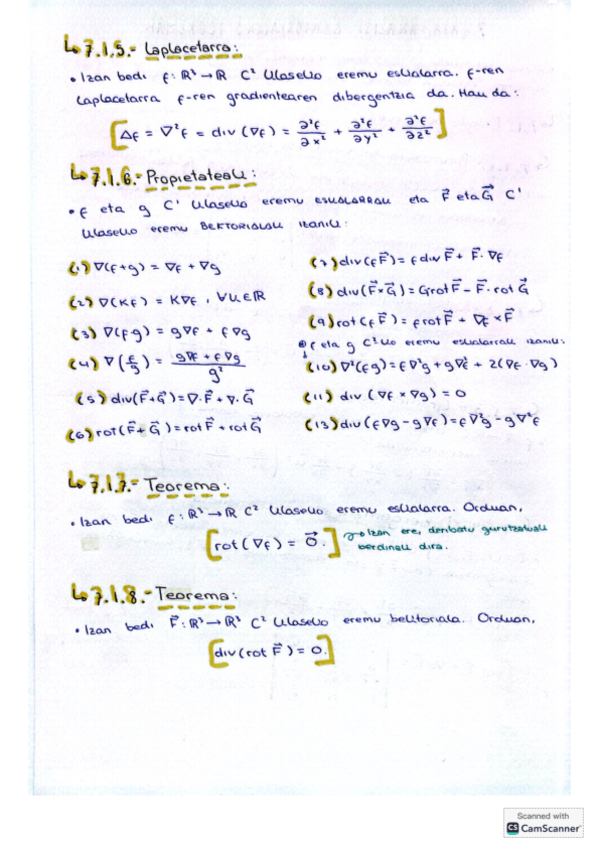 ↳ 7.1.5.- Laplacetarra:
• Izan bedi f: ℝ³→ℝ C² klaseko eremu eskalarra. f-ren
Laplacetarra f-ren gradientearen dibergentzia da. Hau da:
[Δf = ∇²f = div (∇f) = ∂²f/∂x² + ∂²f/∂y² + ∂²f/∂z²]
↳ 7.1.6.- Propietateak:
• f eta g C¹ klaseko eremu ESKALARRAK eta F⃗ eta G⃗ C¹
klaseko eremu BEKTORIALAK izanik:
(1) ∇(f+g) = ∇f + ∇g
(2) ∇(Kf) = K∇f, ∀k∈ℝ
(3) ∇(fg) = g∇f + f∇g
(4) ∇(f/g) = (g∇f + f∇g)/g²
(5) div(F⃗+G⃗) = ∇·F⃗ + ∇·G⃗
(6) rot(F⃗+G⃗) = rotF⃗ + rotG⃗
(7) div(fF⃗) = f divF⃗ + F⃗·∇f
(8) div(F⃗×G⃗) = GrotF⃗ - F⃗·rotG⃗
(9) rot(fF⃗) = frotF⃗ + ∇f×F⃗
f eta g C²ko eremu eskalarrak izanik:
(10) ∇²(fg) = f∇²g + g∇²f + 2(∇f·∇g)
(11) div (∇f×∇g) = 0
(13) div(f∇g - g∇f) = f∇²g - g∇²f
↳ 7.1.7.- Teorema:
• Izan bedi f: ℝ³→ℝ C² klaseko eremu eskalarra. Orduan,
[rot(∇f) = 0⃗.] → Izan ere, deribatu gurutzatuak
berdinak dira.
↳ 7.1.8.- Teorema:
• Izan bedi F⃗: ℝ³→ℝ³ C² klaseko eremu bektoriala. Orduan,
[div(rot F⃗) = 0.]
Scanned with
CS CamScanner